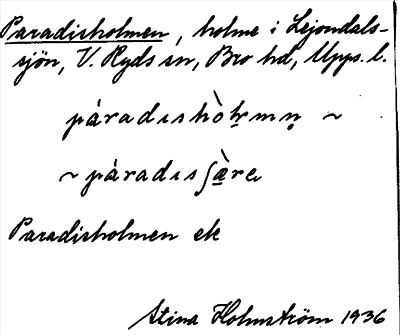 Paradisholmen, holme i Lejondals-
sjön, V. Ryds sn, Bro hd, Upps. l.
páradıshòl̥mn̥ ~
~ páradısʃæ̀rə
Paradisholmen ek
Stina Holmström 1936